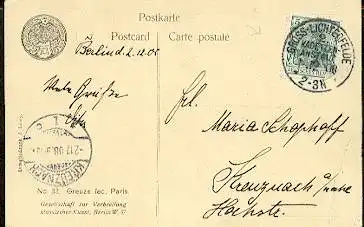 Postkarte
Postcard
Carte postale
Berlin d. 2.12.05
Viele Grüße
Frl.
Maria Schophoff
Kreuznach a/Nahe
Hochstr.
GROSS-LICHTERFELDE
2-3N
KREUZNACH
No. 32. Greuze fec, Paris.
Gesellschaft zur Verbreitung
klassischer Kunst, Berlin W. 57